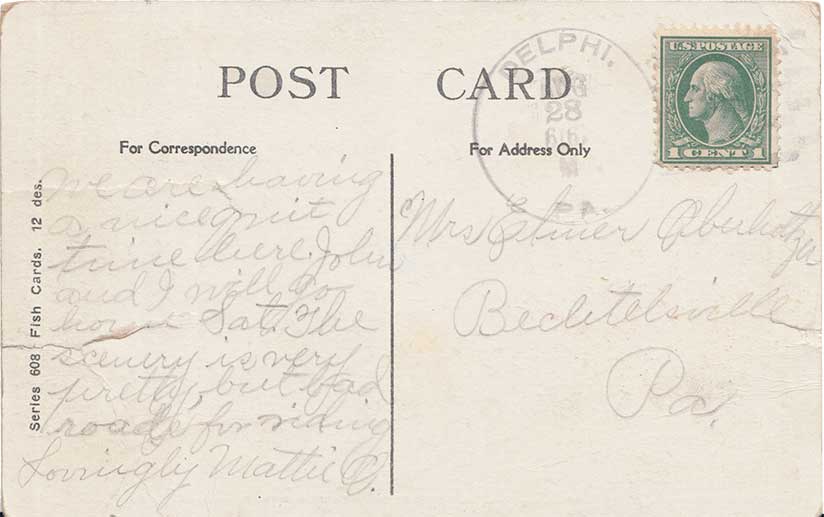 POST CARD
For Correspondence
For Address Only
U.S. POSTAGE
1 CENT 1
DELPHI.
AUG
28
PA.
Series 608 Fish Cards. 12 des.
we are having
a nice quiet
time here. John
and I will go
home Sat. The
scenery is very
pretty, but bad
roads for riding
Lovingly Mattie O.
Mrs Elmer Oberholtzer
Bechtelsville
Pa.